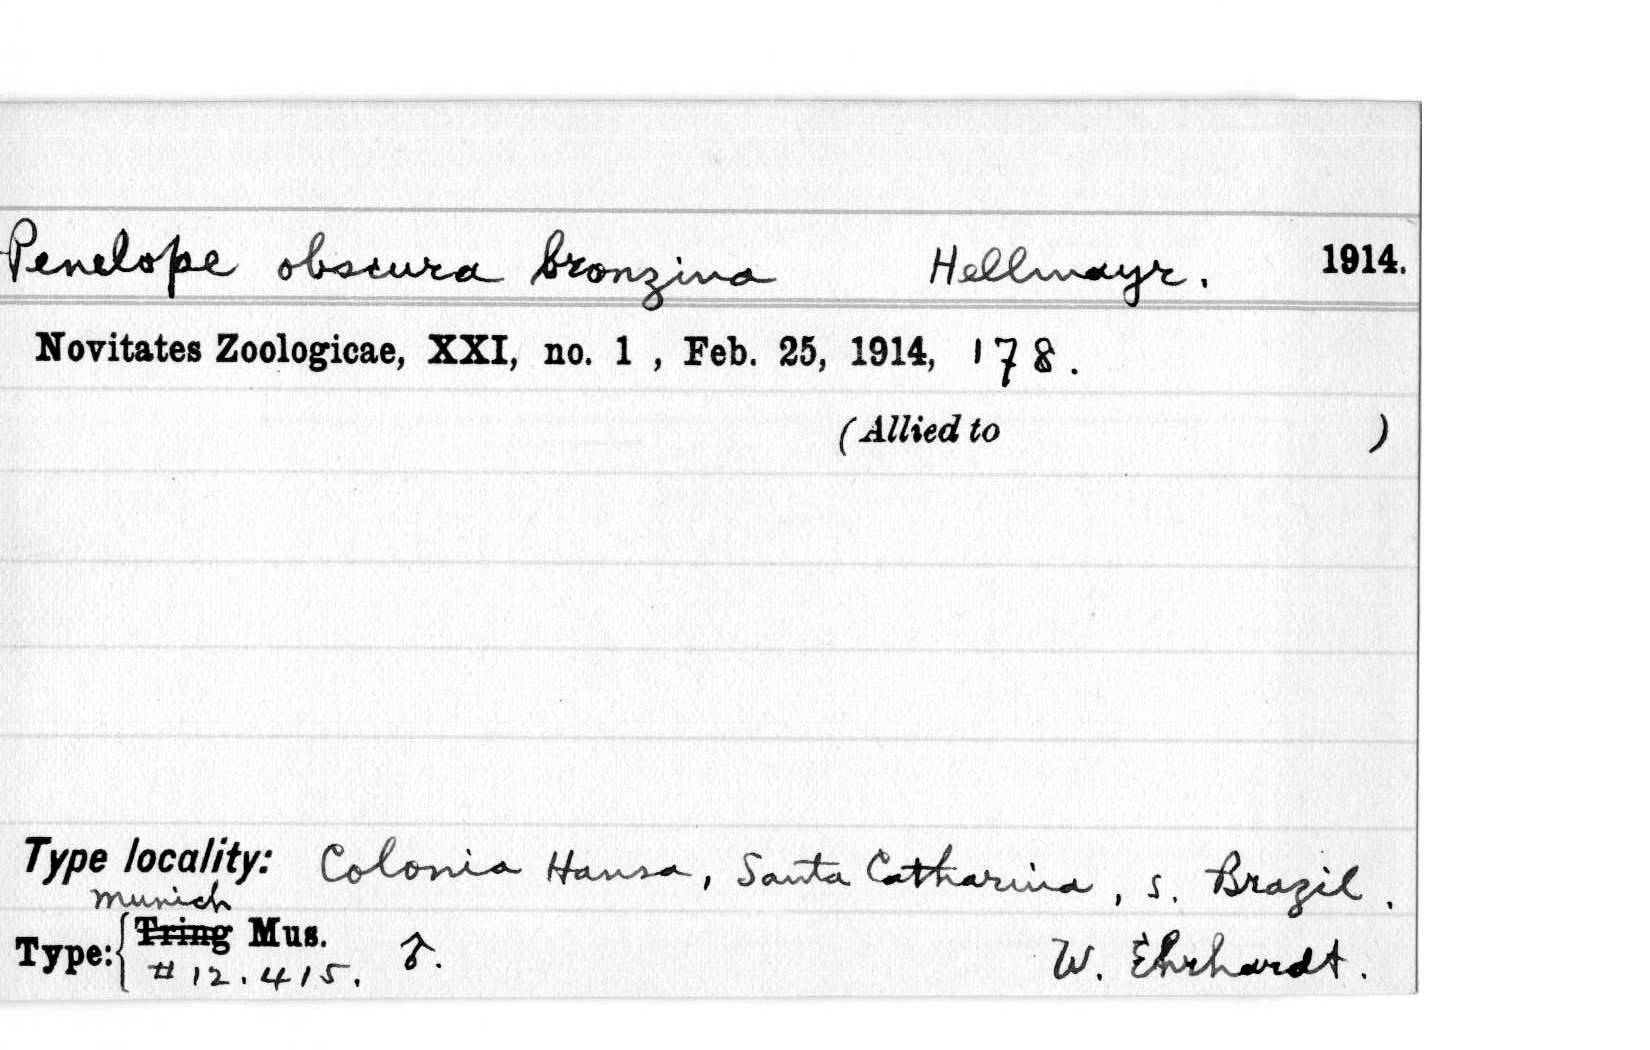 Penelope obscura bronzina Hellmayr. 1914.
Novitates Zoologicae, XXI, no. 1 , Feb. 25, 1914, 178.
(Allied to )
Type locality: Colonia Hansa, Santa Catharina, s. Brazil.
Munich
Type: { Tring Mus. ♂.
#12.415. W. Ehrhardt.